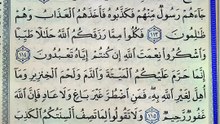 جَآءَهُمْ رَسُولٌ مِّنْهُمْ فَكَذَّبُوهُ فَأَخَذَهُمُ ٱلْعَذَابُ وَهُمْ
ظَٰلِمُونَ ١١٣ فَكُلُوا۟ مِمَّا رَزَقَكُمُ ٱللَّهُ حَلَٰلًا طَيِّبًا
وَٱشْكُرُوا۟ نِعْمَتَ ٱللَّهِ إِن كُنتُمْ إِيَّاهُ تَعْبُدُونَ ١١٤
إِنَّمَا حَرَّمَ عَلَيْكُمُ ٱلْمَيْتَةَ وَٱلدَّمَ وَلَحْمَ ٱلْخِنزِيرِ وَمَآ
أُهِلَّ لِغَيْرِ ٱللَّهِ بِهِۦ فَمَنِ ٱضْطُرَّ غَيْرَ بَاغٍ وَلَا عَادٍ فَإِنَّ ٱللَّهَ
غَفُورٌ رَّحِيمٌ ١١٥ وَلَا تَقُولُوا۟ لِمَا تَصِفُ أَلْسِنَتُكُمُ ٱلْكَذِبَ